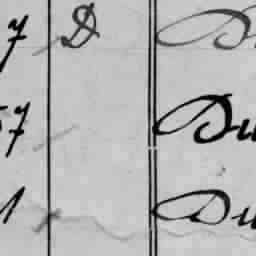 7 D D
57 Du
1 Du